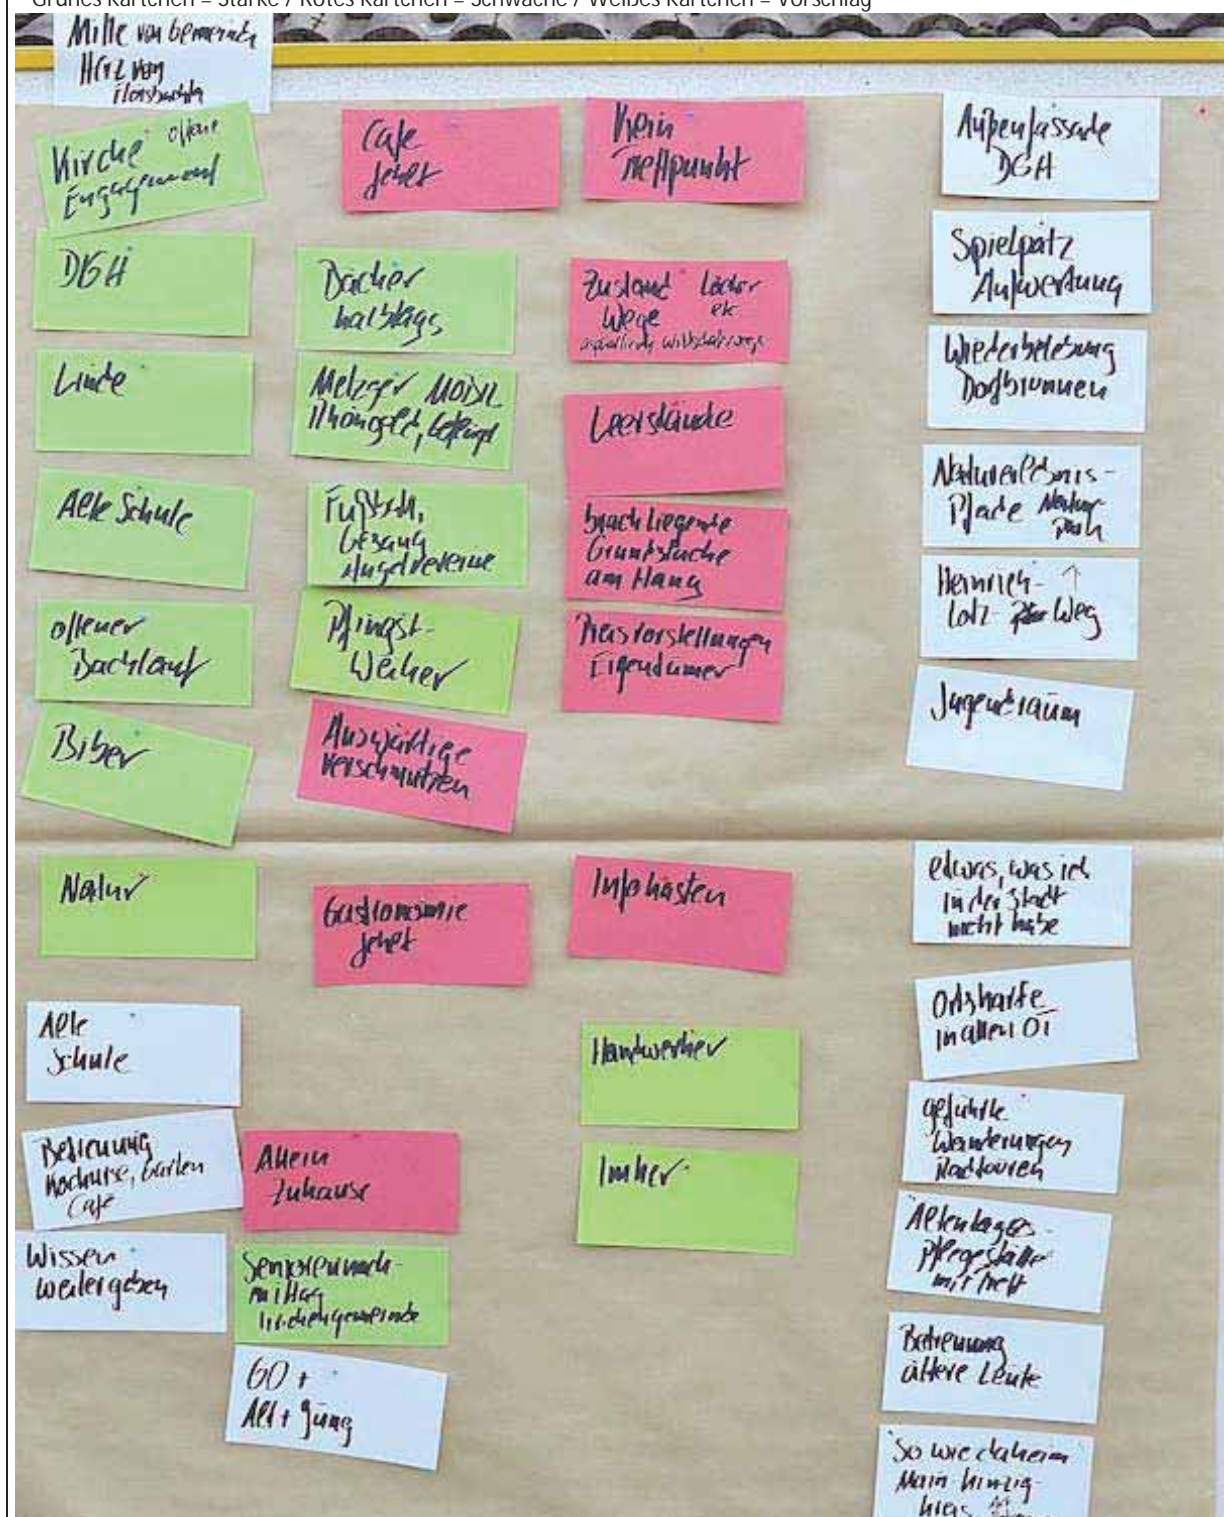 Grünes Kärtchen = Stärke / Rotes Kärtchen = Schwäche / Weißes Kärtchen = Vorschlag
Mitte von
Herz von
Kirche offene
Engagement
DGH
Linde
Alte Schule
offener
Bachlauf
Biber
Natur
Alte
Schule
Betreuung
Kochkurse, Garten
Cafe
Wissen
weitergeben
Cafe
fehlt
Bäcker
halbtags
Metzger Mobil
Rhöngold,
Fußball,
Gesang
Angelvereine
Pfingst-
Weiher
Auswärtige
verschmutzen
Gastronomie
fehlt
Allein
zuhause
Seniorennach-
mittag
Kirchengemeinde
60 +
Alt + Jung
Kein
Treffpunkt
Zustand Löcher
Wege etc
Leerstände
brach liegende
Grundstücke
am Hang
Preisvorstellungen
Eigentümer
Infokasten
Handwerker
Imker
Außenfassade
DGH
Spielpatz
Aufwertung
Wiederbelebung
Dorfbrunnen
Naturerlebnis-
Pfade
Heinrich- ↑
Lotz- Weg
Jugendraum
etwas, was ich
in der Stadt
nicht habe
Ortskarte
in allen OT
geführte
Wanderungen
Radtouren
Altentages-
pflegestätte
mit Treff
Betreuung
ältere Leute
"So wie daheim"
Main-Kinzig-
kreis